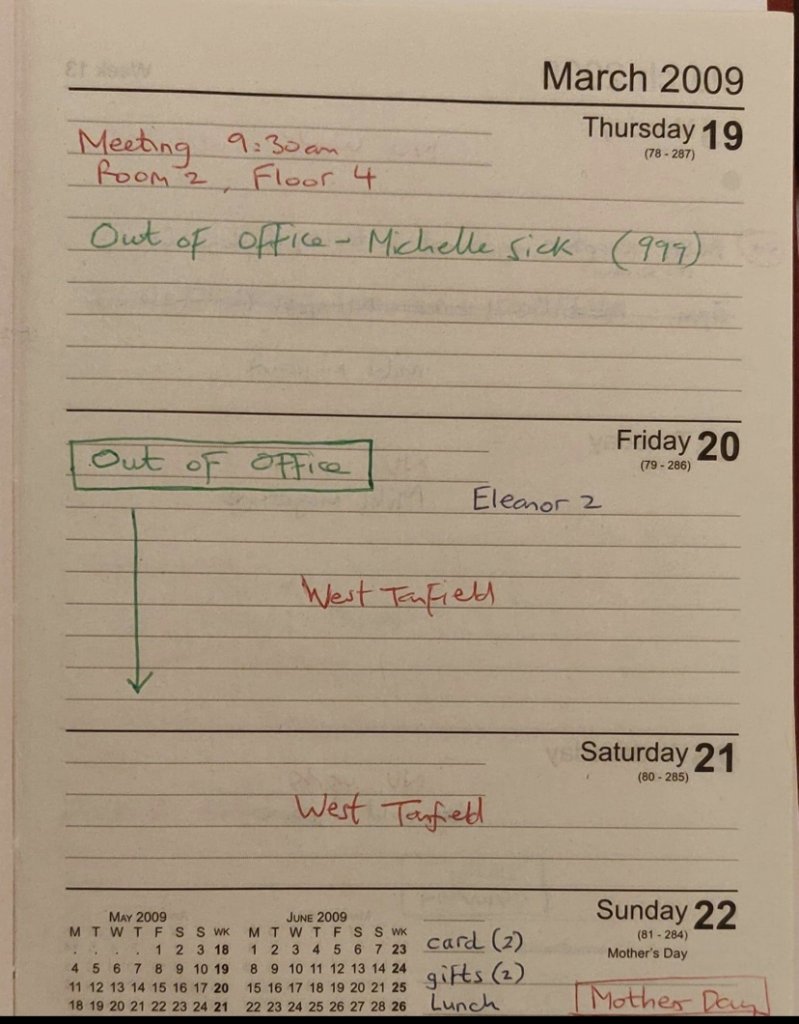 March 2009
Thursday 19
(78 - 287)
Meeting 9:30am
Room 2, Floor 4
Out of office - Michelle sick (999)
Friday 20
(79 - 286)
Out of office
Eleanor 2
West Tanfield
Saturday 21
(80 - 285)
West Tanfield
Sunday 22
(81 - 284)
Mother's Day
card (2)
gifts (2)
Lunch
Mother Day
MAY 2009
M T W T F S S WK
. . . . 1 2 3 18
4 5 6 7 8 9 10 19
11 12 13 14 15 16 17 20
18 19 20 21 22 23 24 21
JUNE 2009
M T W T F S S WK
1 2 3 4 5 6 7 23
8 9 10 11 12 13 14 24
15 16 17 18 19 20 21 25
22 23 24 25 26 27 28 26